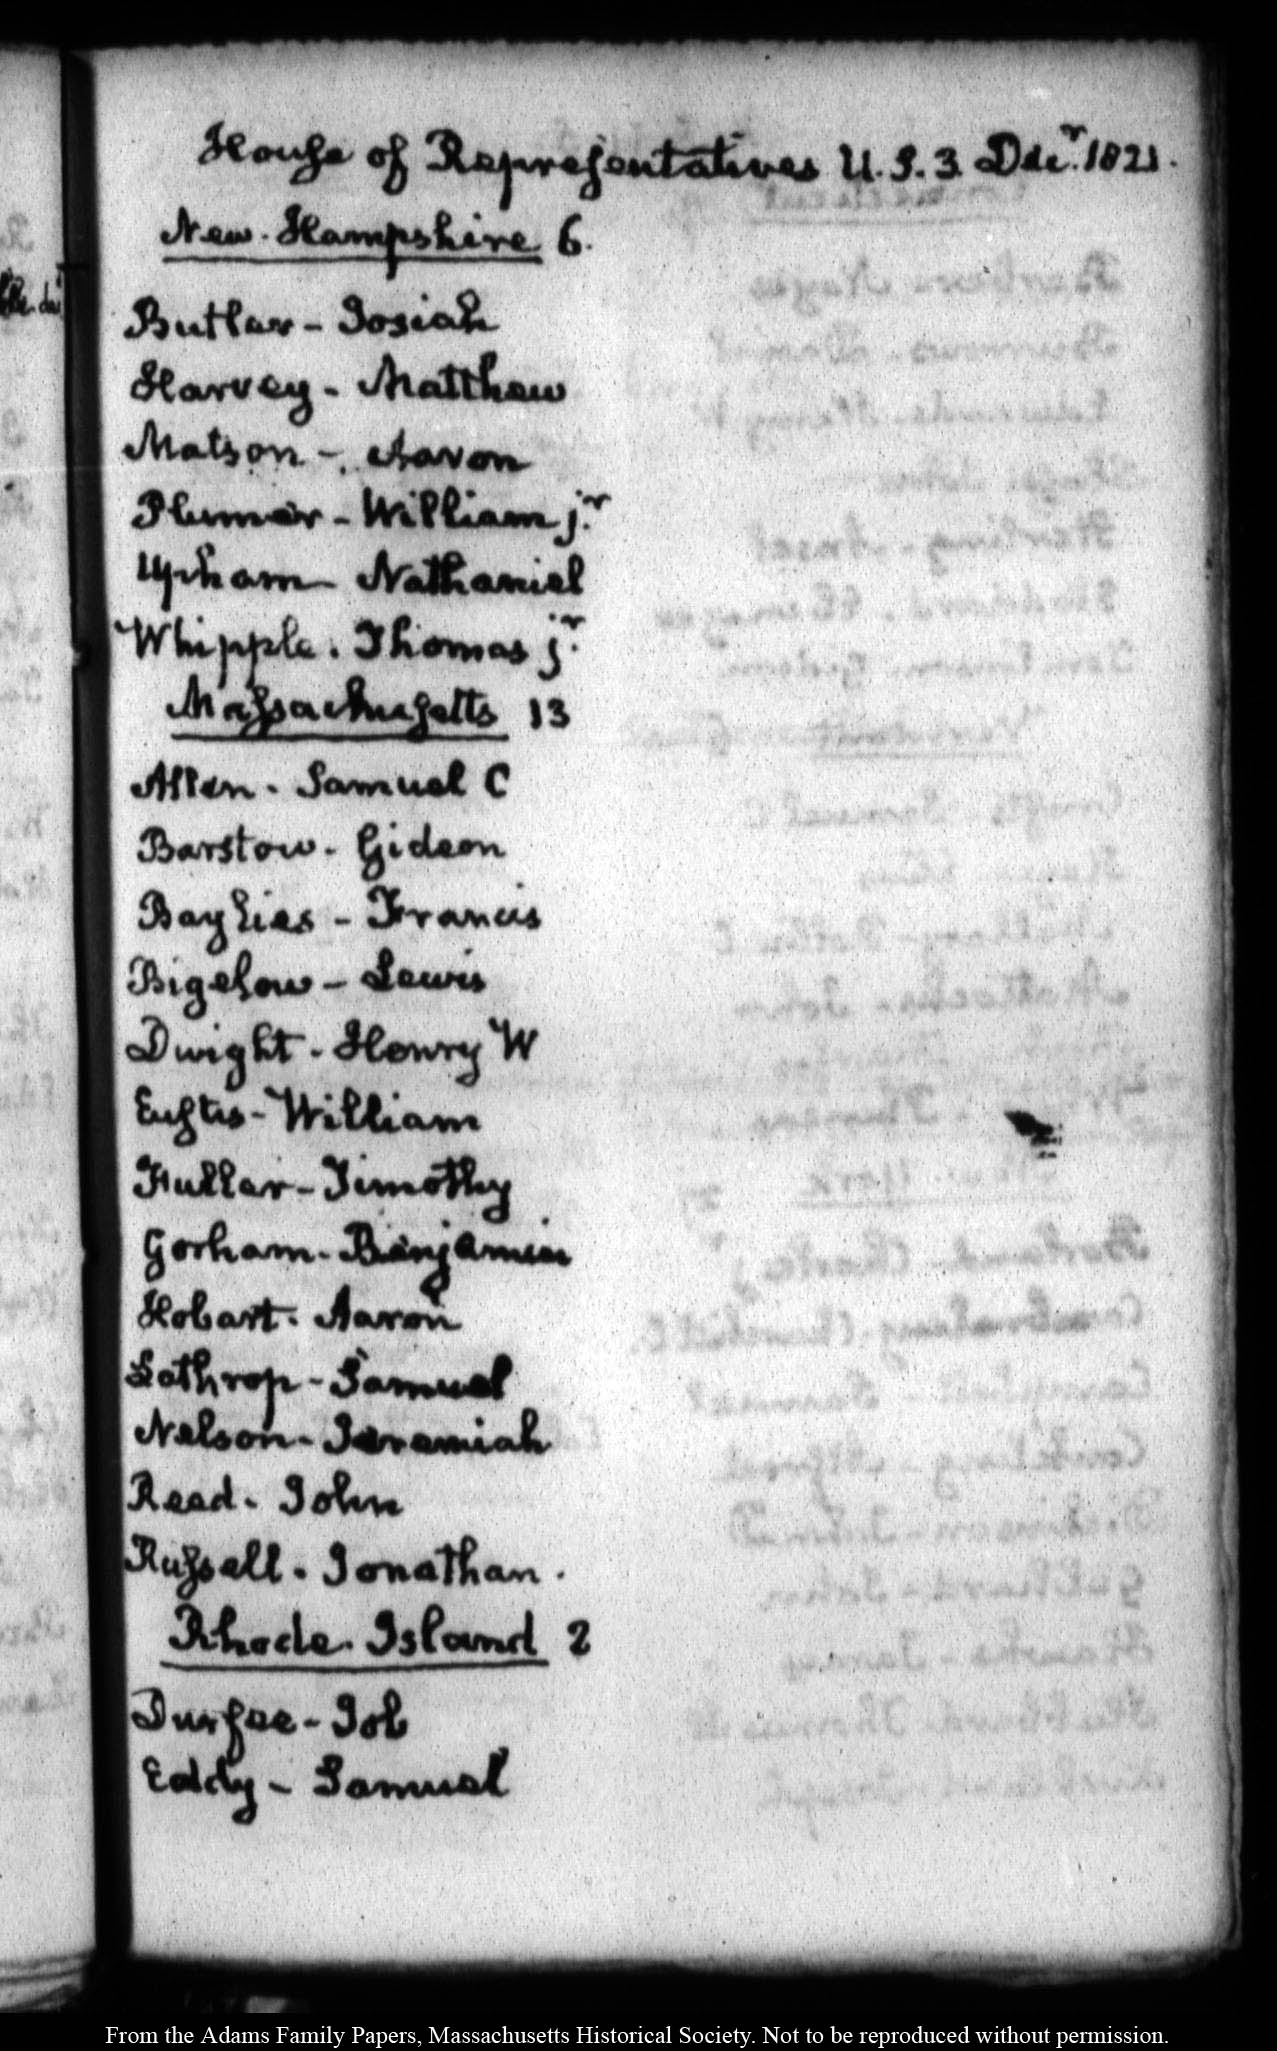 House of Representatives U.S. 3 Decr. 1821.
New-Hampshire 6.
Butler - Josiah
Harvey - Matthew
Matson - Aaron
Plumer - William jr.
Upham - Nathaniel
Whipple. Thomas jr.
Massachusetts 13
Allen - Samuel C
Barstow - Gideon
Baylies - Francis
Bigelow - Lewis
Dwight - Henry W
Eustis - William
Fuller - Timothy
Gorham - Benjamin
Hobart - Aaron
Lathrop - Samuel
Nelson - Jeremiah
Reed - John
Russell - Jonathan.
Rhode-Island 2
Durfee - Job
Eddy - Samuel
From the Adams Family Papers, Massachusetts Historical Society. Not to be reproduced without permission.